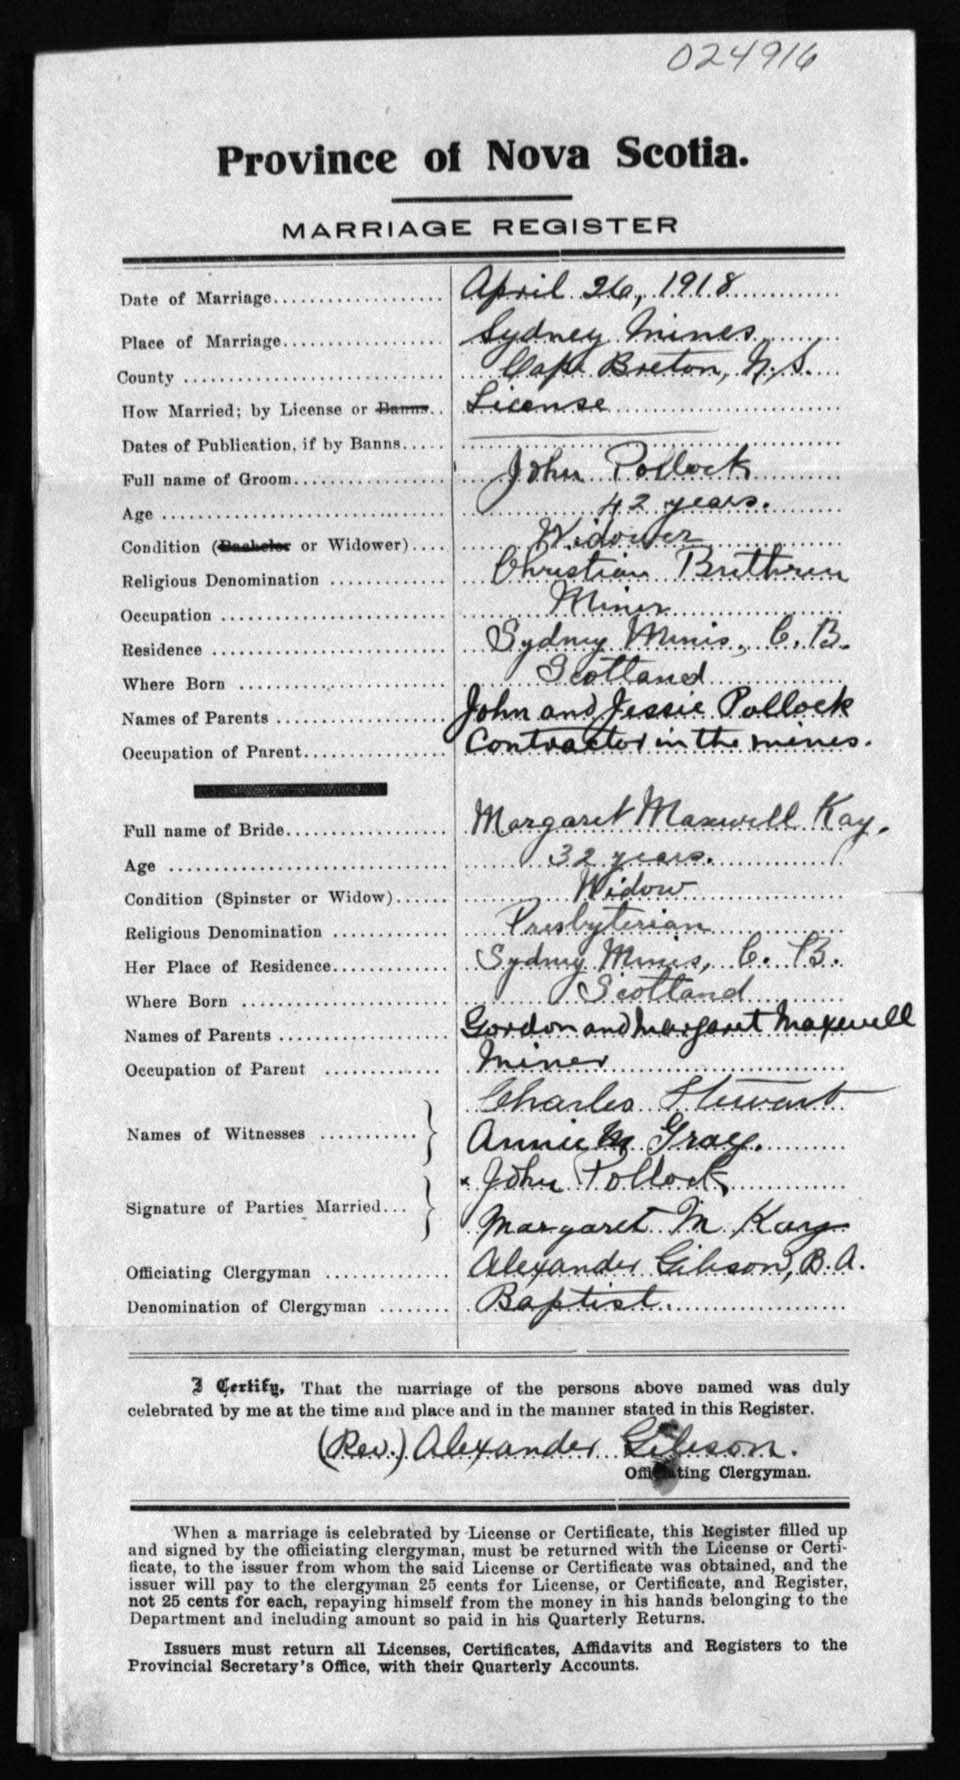 024916
Province of Nova Scotia.
MARRIAGE REGISTER
Date of Marriage.................... April 26, 1918
Place of Marriage.................. Sydney Mines
County ............................ Cape Breton, N.S.
How Married; by License or Banns.. License
Dates of Publication, if by Banns.....
Full name of Groom................ John Pollock
Age ............................... 42 years.
Condition (Bachelor or Widower).... Widower
Religious Denomination ............ Christian Brethren
Occupation ........................ Miner
Residence ......................... Sydney Mines, C. B.
Where Born ........................ Scotland
Names of Parents .................. John and Jessie Pollock
Occupation of Parent............... Contractor in the mines.
Full name of Bride................. Margaret Maxwell Kay.
Age ............................... 32 years.
Condition (Spinster or Widow)...... Widow
Religious Denomination ............ Presbyterian
Her Place of Residence............. Sydney Mines, C. B.
Where Born ........................ Scotland
Names of Parents .................. Gordon and Margaret Maxwell
Occupation of Parent ............ Miner
Charles Stewart
Names of Witnesses ........... } Annie M Gray.
x John Pollock
Signature of Parties Married... }
Margaret M Kay
Officiating Clergyman ............. Alexander Gibson, B.A.
Denomination of Clergyman ........ Baptist
I Certify, That the marriage of the persons above named was duly
celebrated by me at the time and place and in the manner stated in this Register.
(Rev.) Alexander Gibson.
Officiating Clergyman.
When a marriage is celebrated by License or Certificate, this Register filled up
and signed by the officiating clergyman, must be returned with the License or Certi-
ficate, to the issuer from whom the said License or Certificate was obtained, and the
issuer will pay to the clergyman 25 cents for License, or Certificate, and Register,
not 25 cents for each, repaying himself from the money in his hands belonging to the
Department and including amount so paid in his Quarterly Returns.
Issuers must return all Licenses, Certificates, Affidavits and Registers to the
Provincial Secretary's Office, with their Quarterly Accounts.